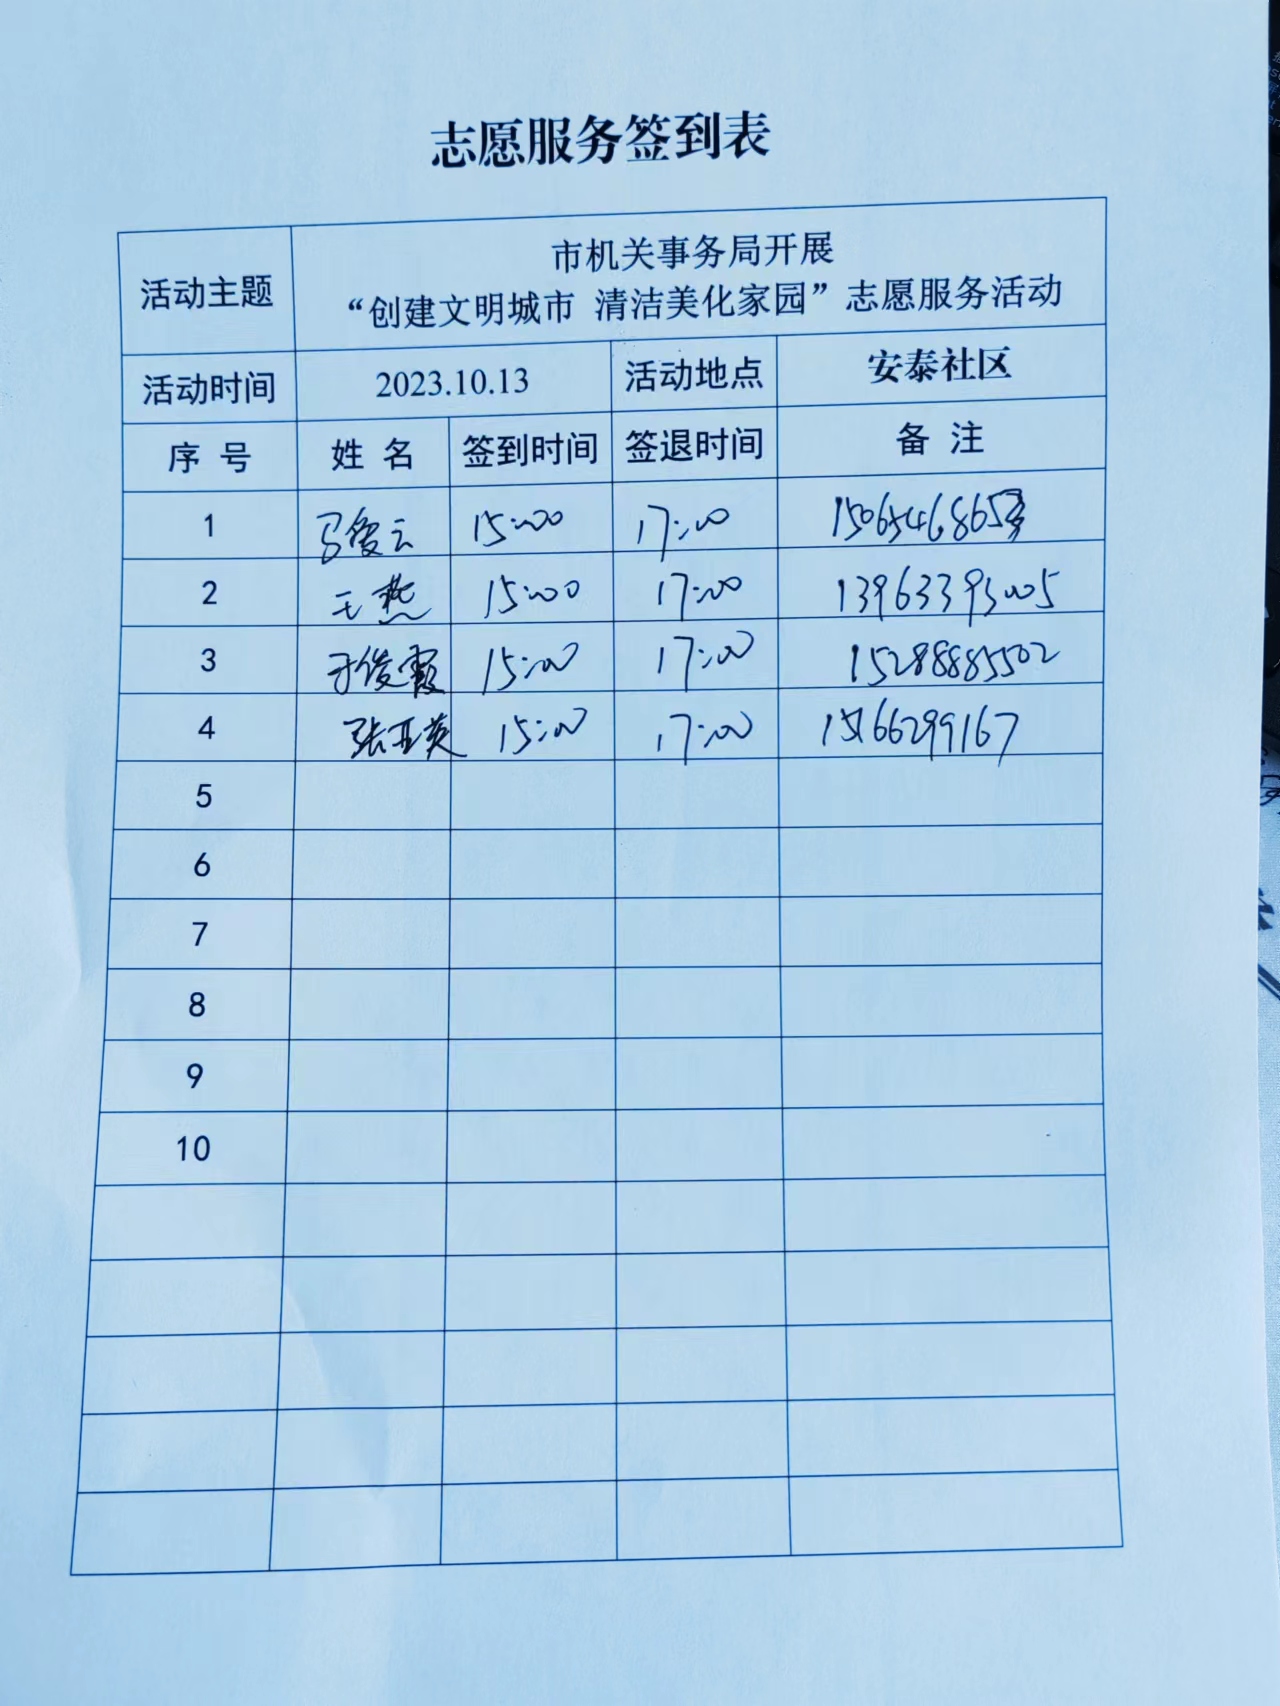 志愿服务签到表
活动主题 市机关事务局开展
“创建文明城市 清洁美化家园”志愿服务活动
活动时间 2023.10.13 活动地点 安泰社区
序 号 姓 名 签到时间 签退时间 备 注
1 马爱云 15:00 17:00
2 王燕 15:00 17:00 13963395005
3 于俊霞 15:00 17:00 15288885502
4 张亚英 15:00 17:00 15166299167
5
6
7
8
9
10